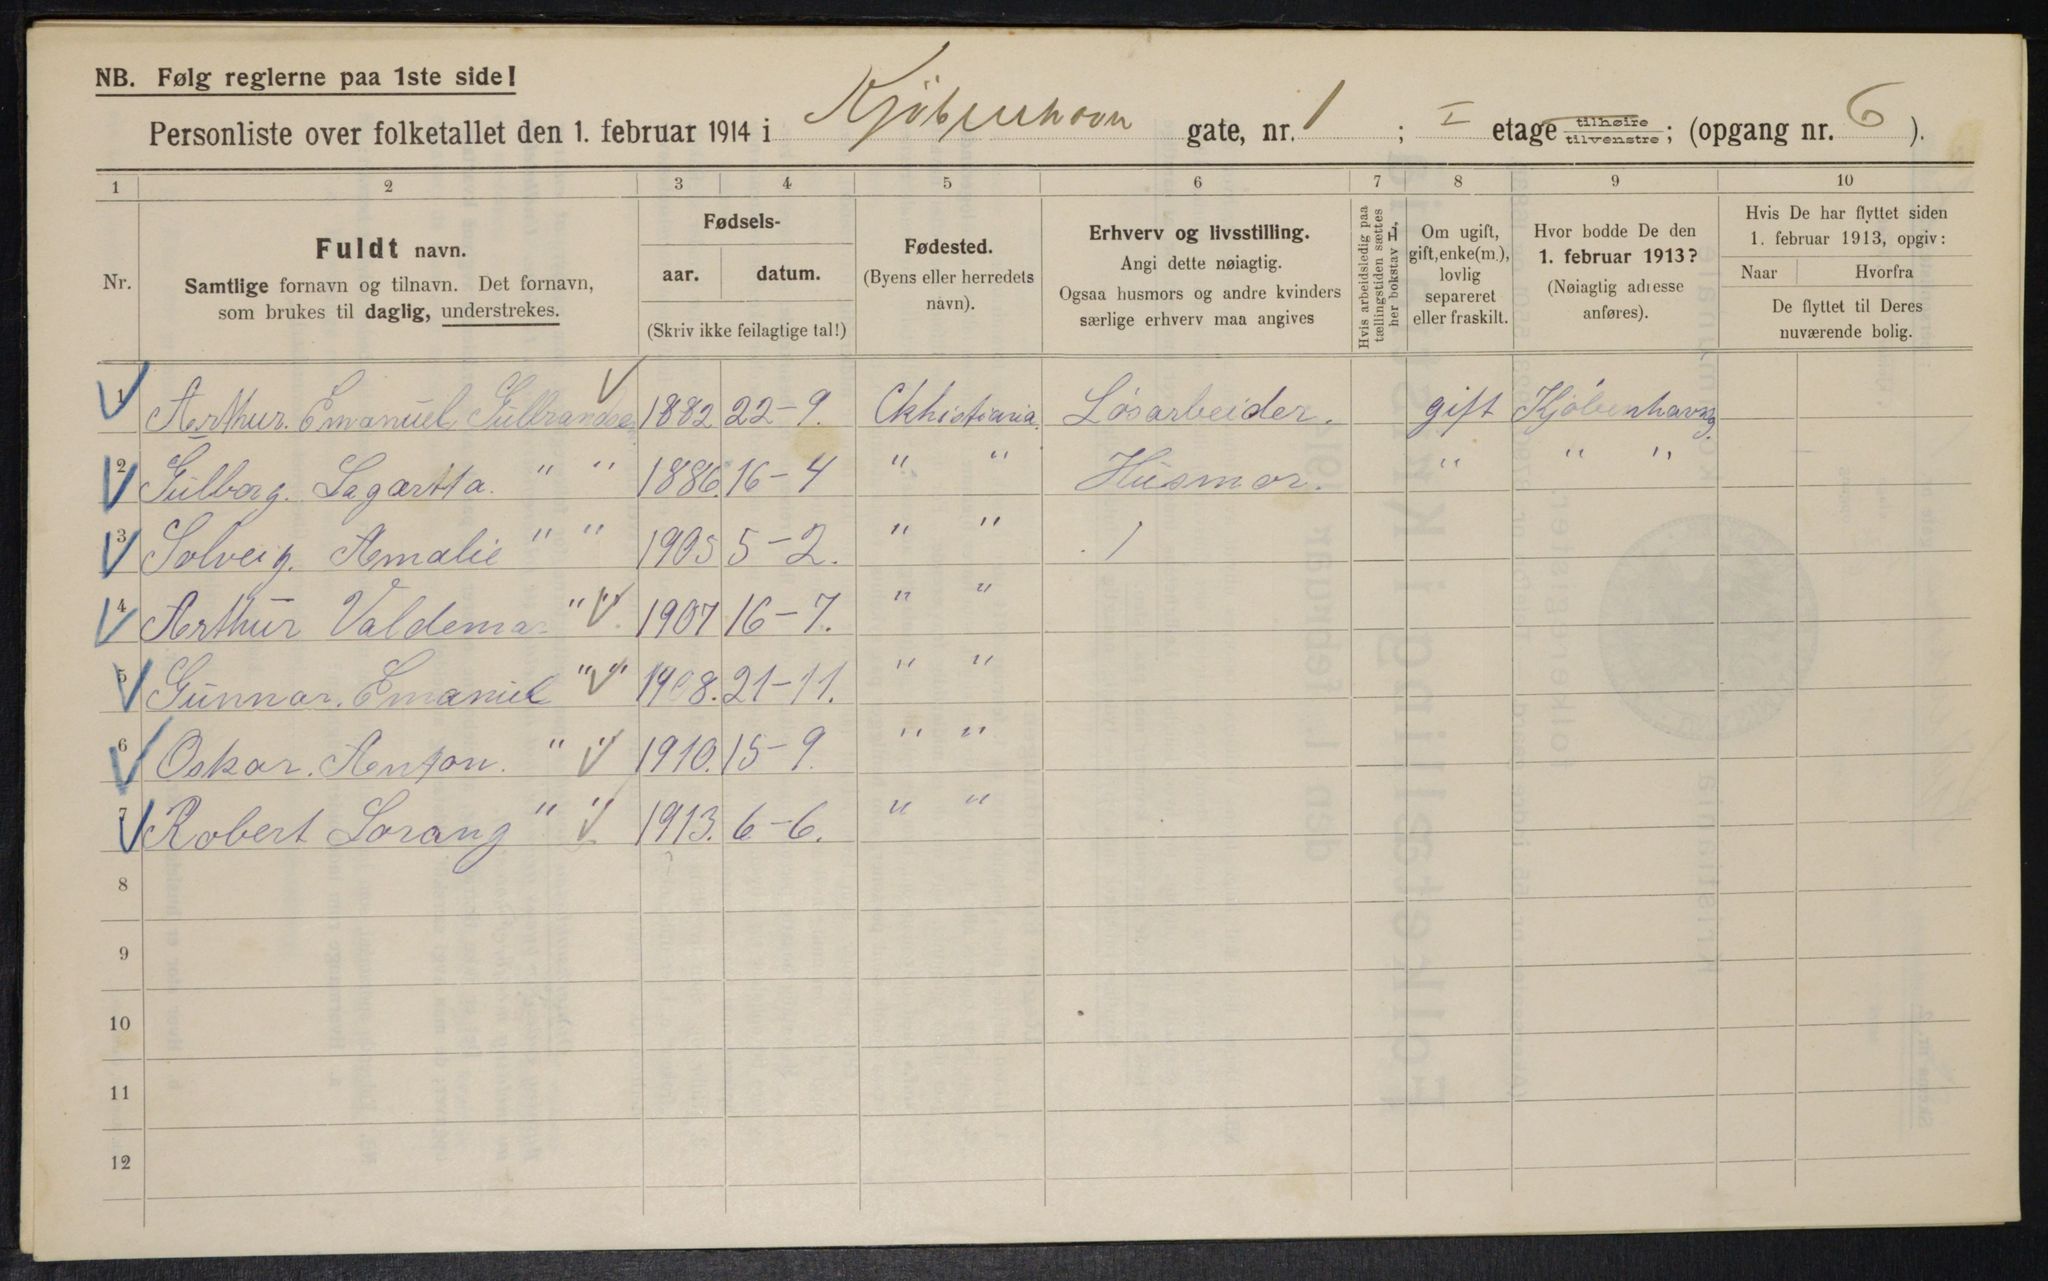 NB. Følg reglerne paa 1ste side!
Personliste over folketallet den 1. februar 1914 i Kjøbenhavn gate, nr. 1 ; I etage tilhøire tilvenstre; (opgang nr. 6 ).
1 2 3 4 5 6 7 8 9 10
Nr.
Fuldt navn.
Samtlige fornavn og tilnavn. Det fornavn,
som brukes til daglig, understrekes.
Fødsels-
aar. datum.
(Skriv ikke feilagtige tal!)
Fødested.
(Byens eller herredets
navn).
Erhverv og livsstilling.
Angi dette nøiagtig.
Ogsaa husmors og andre kvinders
særlige erhverv maa angives
Hvis arbeidsledig paa
tællingstiden sættes
her bokstav L.
Om ugift,
gift, enke(m.),
lovlig
separeret
eller fraskilt.
Hvor bodde De den
1. februar 1913?
(Nøiagtig adresse
anføres).
Hvis De har flyttet siden
1. februar 1913, opgiv:
Naar Hvorfra
De flyttet til Deres
nuværende bolig.
1 Arthur. Emanuel Gulbrandsen 1882 22-9. Ckhistiania. Løsarbeider. gift Kjøbenhavng.
2 Gulborg. Lagærtta. " " 1886. 16-4 " " Husmor. " " "
3 Solveig. Amalie " " 1905 5-2. " "
4 Arthur Valdemar " " 1907 16-7. " "
5 Gunnar. Emanuel " " 1908. 21-11. " "
6 Oskar. Anton. " " 1910. 15-9. " "
7 Robert Lorang " " 1913. 6-6. " "
8
9
10
11
12